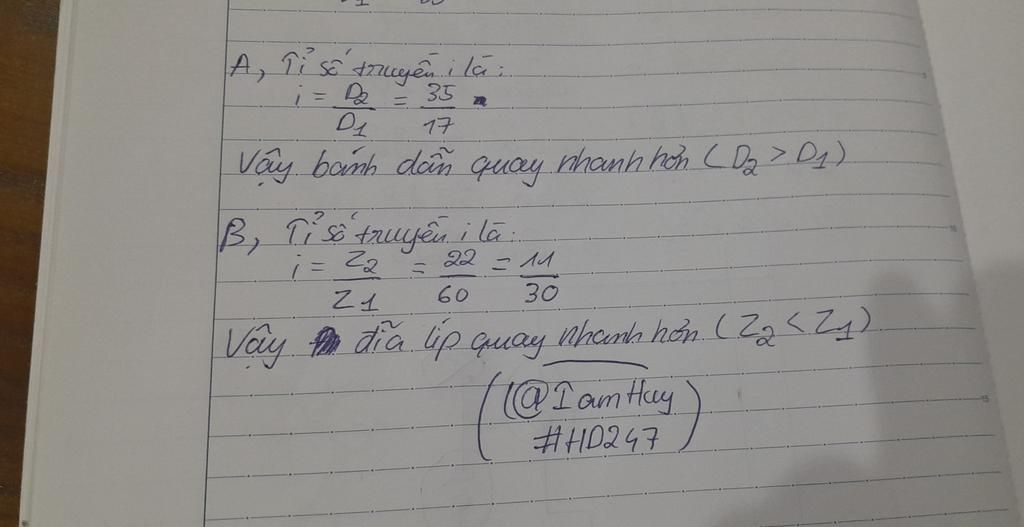 A, Tỉ số truyền i là:
i = D2/D1 = 35/17
Vậy bánh dẫn quay nhanh hơn (D2 > D1)
B, Tỉ số truyền i là:
i = Z2/Z1 = 22/60 = 11/30
Vậy đĩa líp quay nhanh hơn (Z2 < Z1)
(@IamHuy
#HD247)